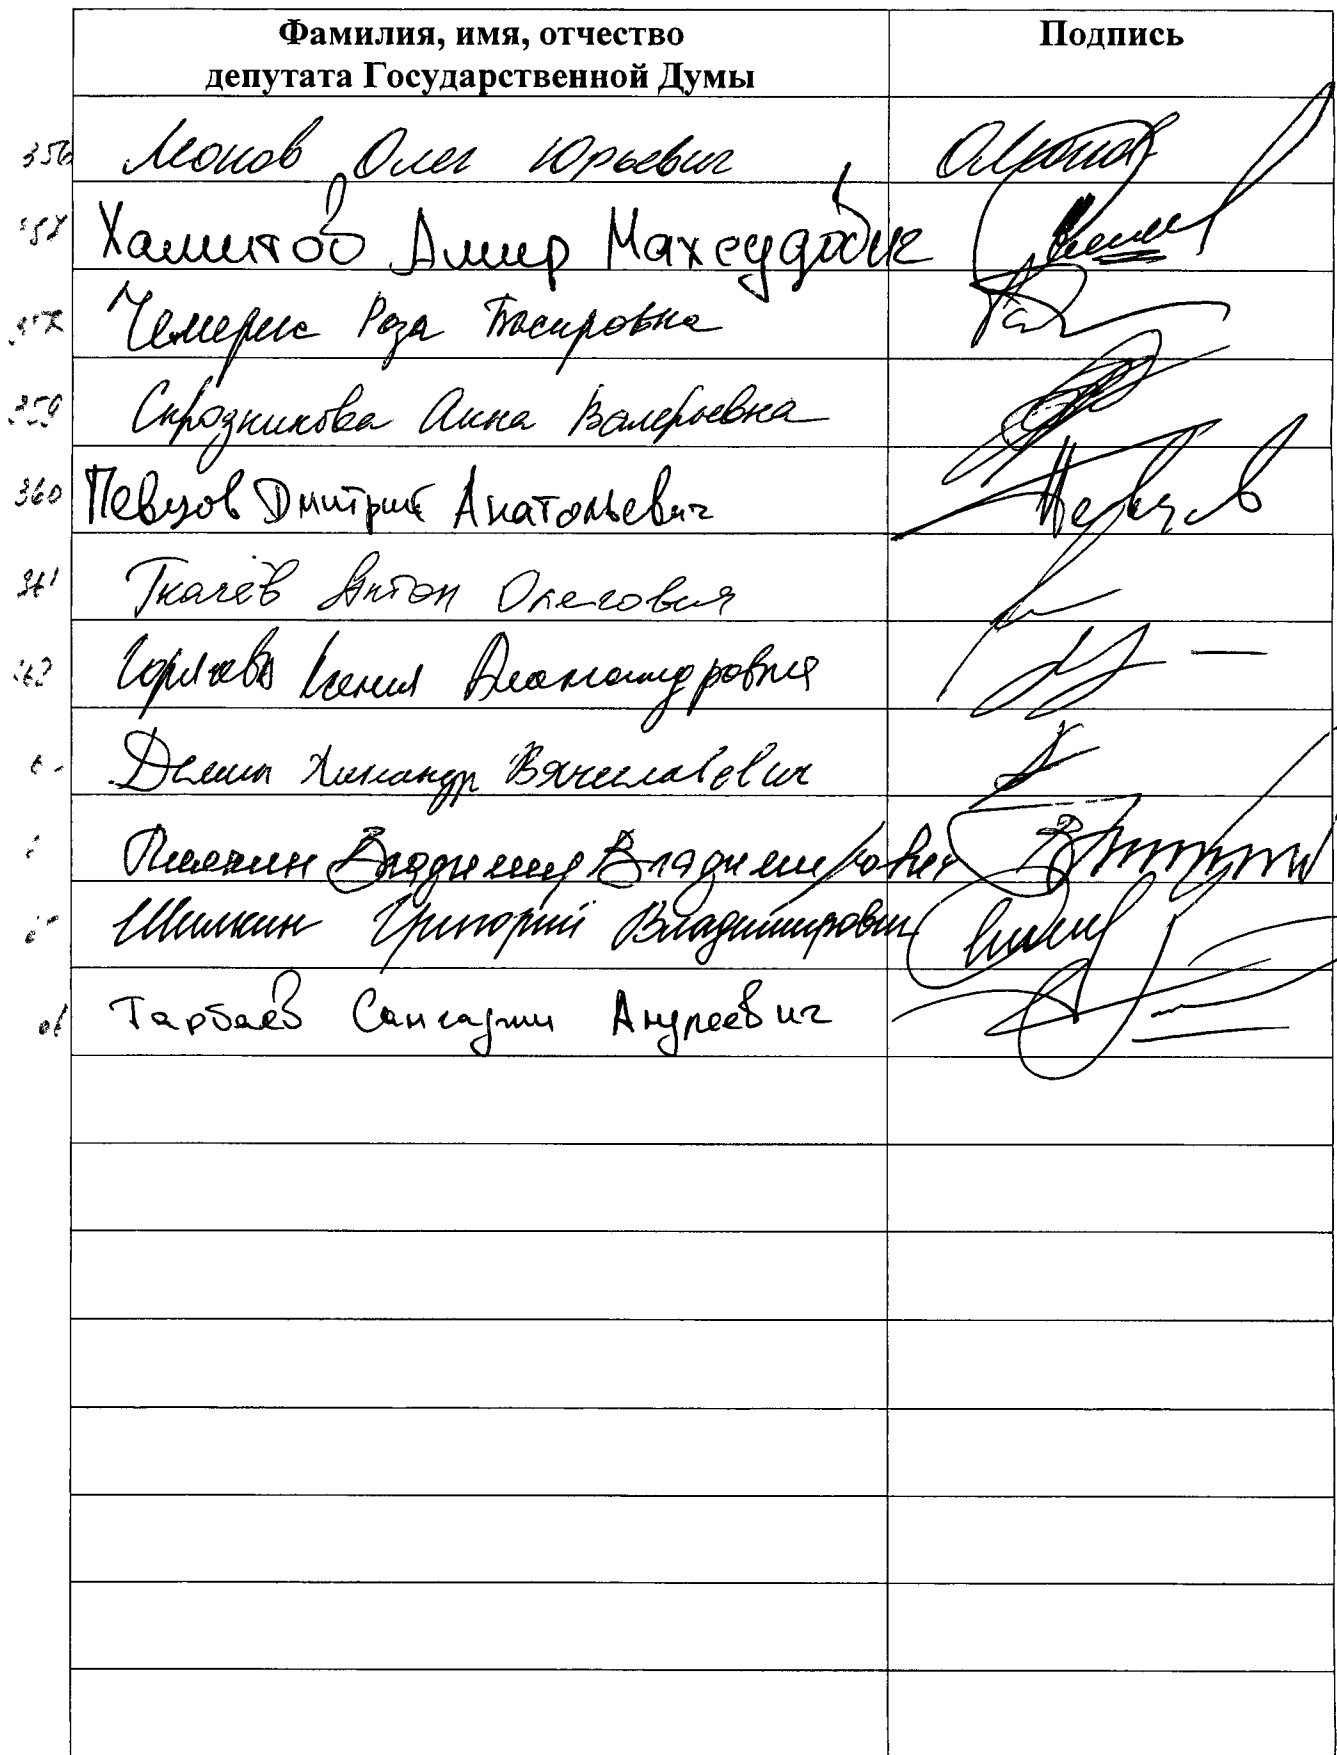 Фамилия, имя, отчество
депутата Государственной Думы
Подпись
356 Леонов Олег Юрьевич
Хамитов Амир Махсудович
Чемерис Роза Басировна
359 Скрозникова Анна Валерьевна
360 Певцов Дмитрий Анатольевич Певцов
361 Ткачёв Антон Олегович
Горячева Ксения Александровна
Демин Александр Вячеславович
Плякин Владимир Владимирович
Шилкин Григорий Владимирович
Тарбаев Сангаджи Андреевич